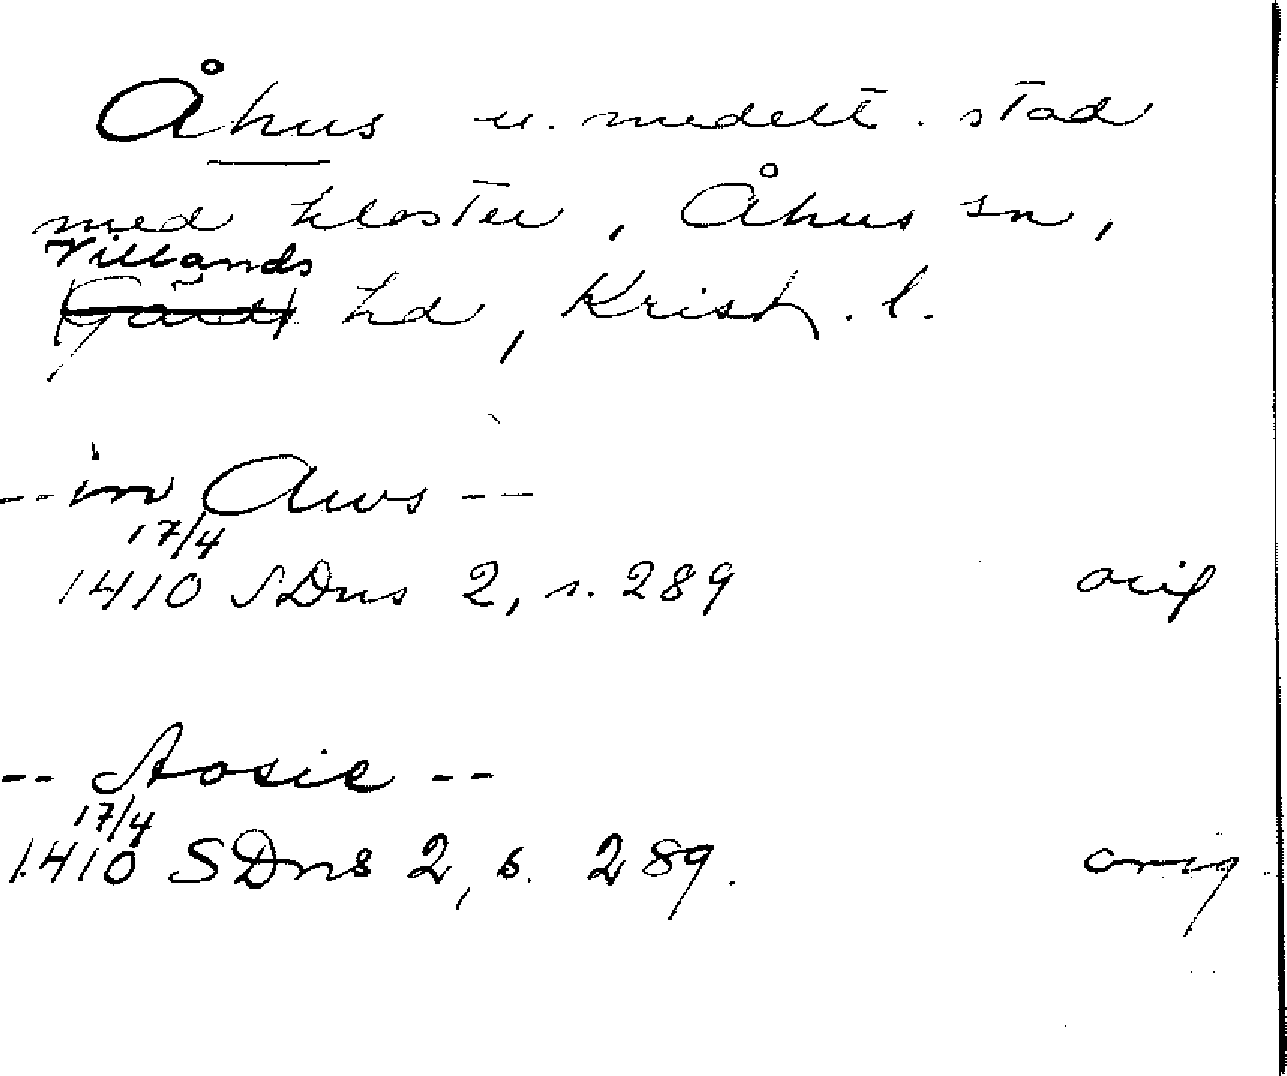 Åhus u. medelt. stad
med kloster, Åhus sn,
Villands
Gärds hd, Krist. l.
-- in Aws --
17/4
1410 SDns 2, s. 289 orig
-- Aosie --
17/4
1410 SDns 2, s. 289. orig